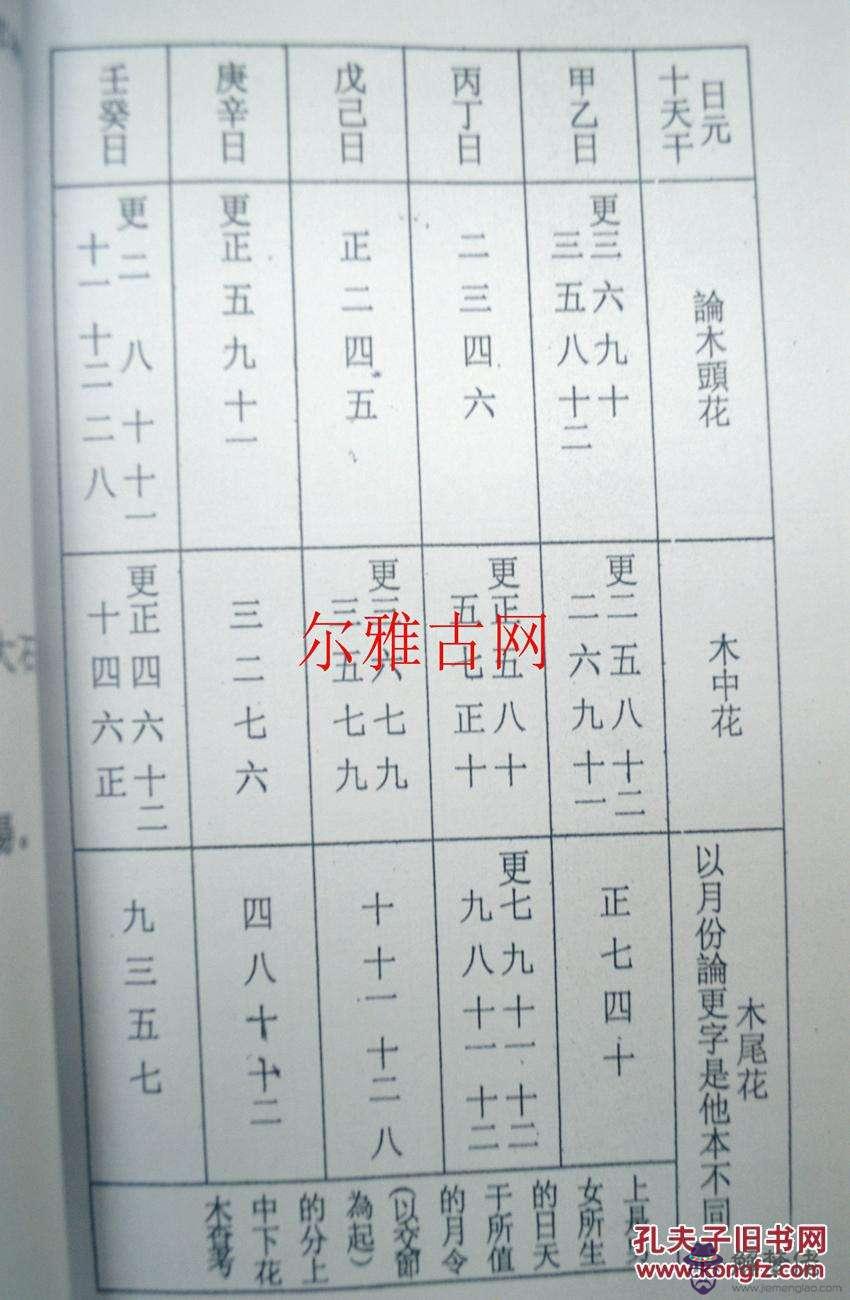 日元
十天干
論木頭花
木中花
木尾花
以月份論更字是他本不同
甲乙日
更三六九十
三五八十二
更二五八十二
二六九十一
正七四十
丙丁日
二三四六
更正五八十
五七正十
更七九十一十二
九八十一十二
戊己日
正二四五
更三六七九
三五七九
十十一十二八
庚辛日
更正五九十一
三二七六
四八十十二
壬癸日
更二八十十一
十一十二二八
更正四六十二
十四六正
九三五七
上是
女所生
的日天
干所值
的月令
(以交節
為起)
的分上
中下花
木
尔雅古网
孔夫子旧书网
www.kongfz.com
www.jiemenglao.com